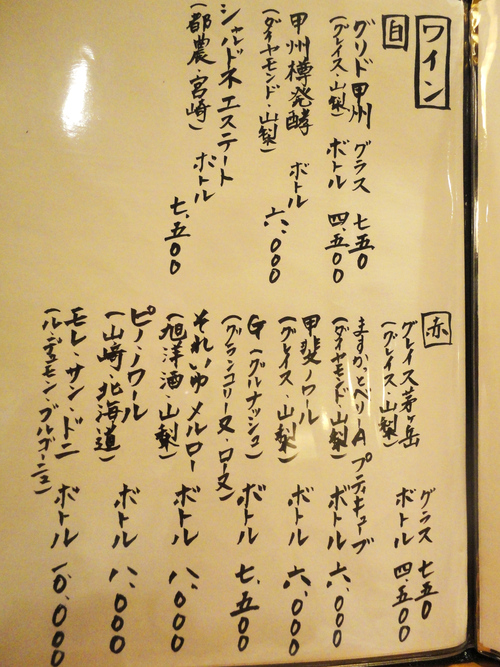 ワイン
白
グリド甲州 グラス 七五〇
(グレイス・山梨) ボトル 四、五〇〇
甲州樽発酵 ボトル 六、〇〇〇
(ダイヤモンド・山梨)
シャルドネエステート ボトル 七、五〇〇
(都農・宮崎)
赤
グレイス茅ヶ岳 グラス 七五〇
(グレイス・山梨) ボトル 四、五〇〇
ますかっとベリーA プティキューブ
(ダイヤモンド・山梨) ボトル 六、〇〇〇
甲斐ノワール ボトル 六、〇〇〇
(グレイス・山梨)
G(グルナッシュ) ボトル 七、五〇〇
(グランコリーヌ・ローヌ)
それいゆメルロー ボトル 八、〇〇〇
(旭洋酒・山梨)
ピノ・ノワール ボトル 八、〇〇〇
(山崎・北海道)
モレ・サン・ドニ ボトル 一〇、〇〇〇
(ル・デュモン・ブルゴーニュ)